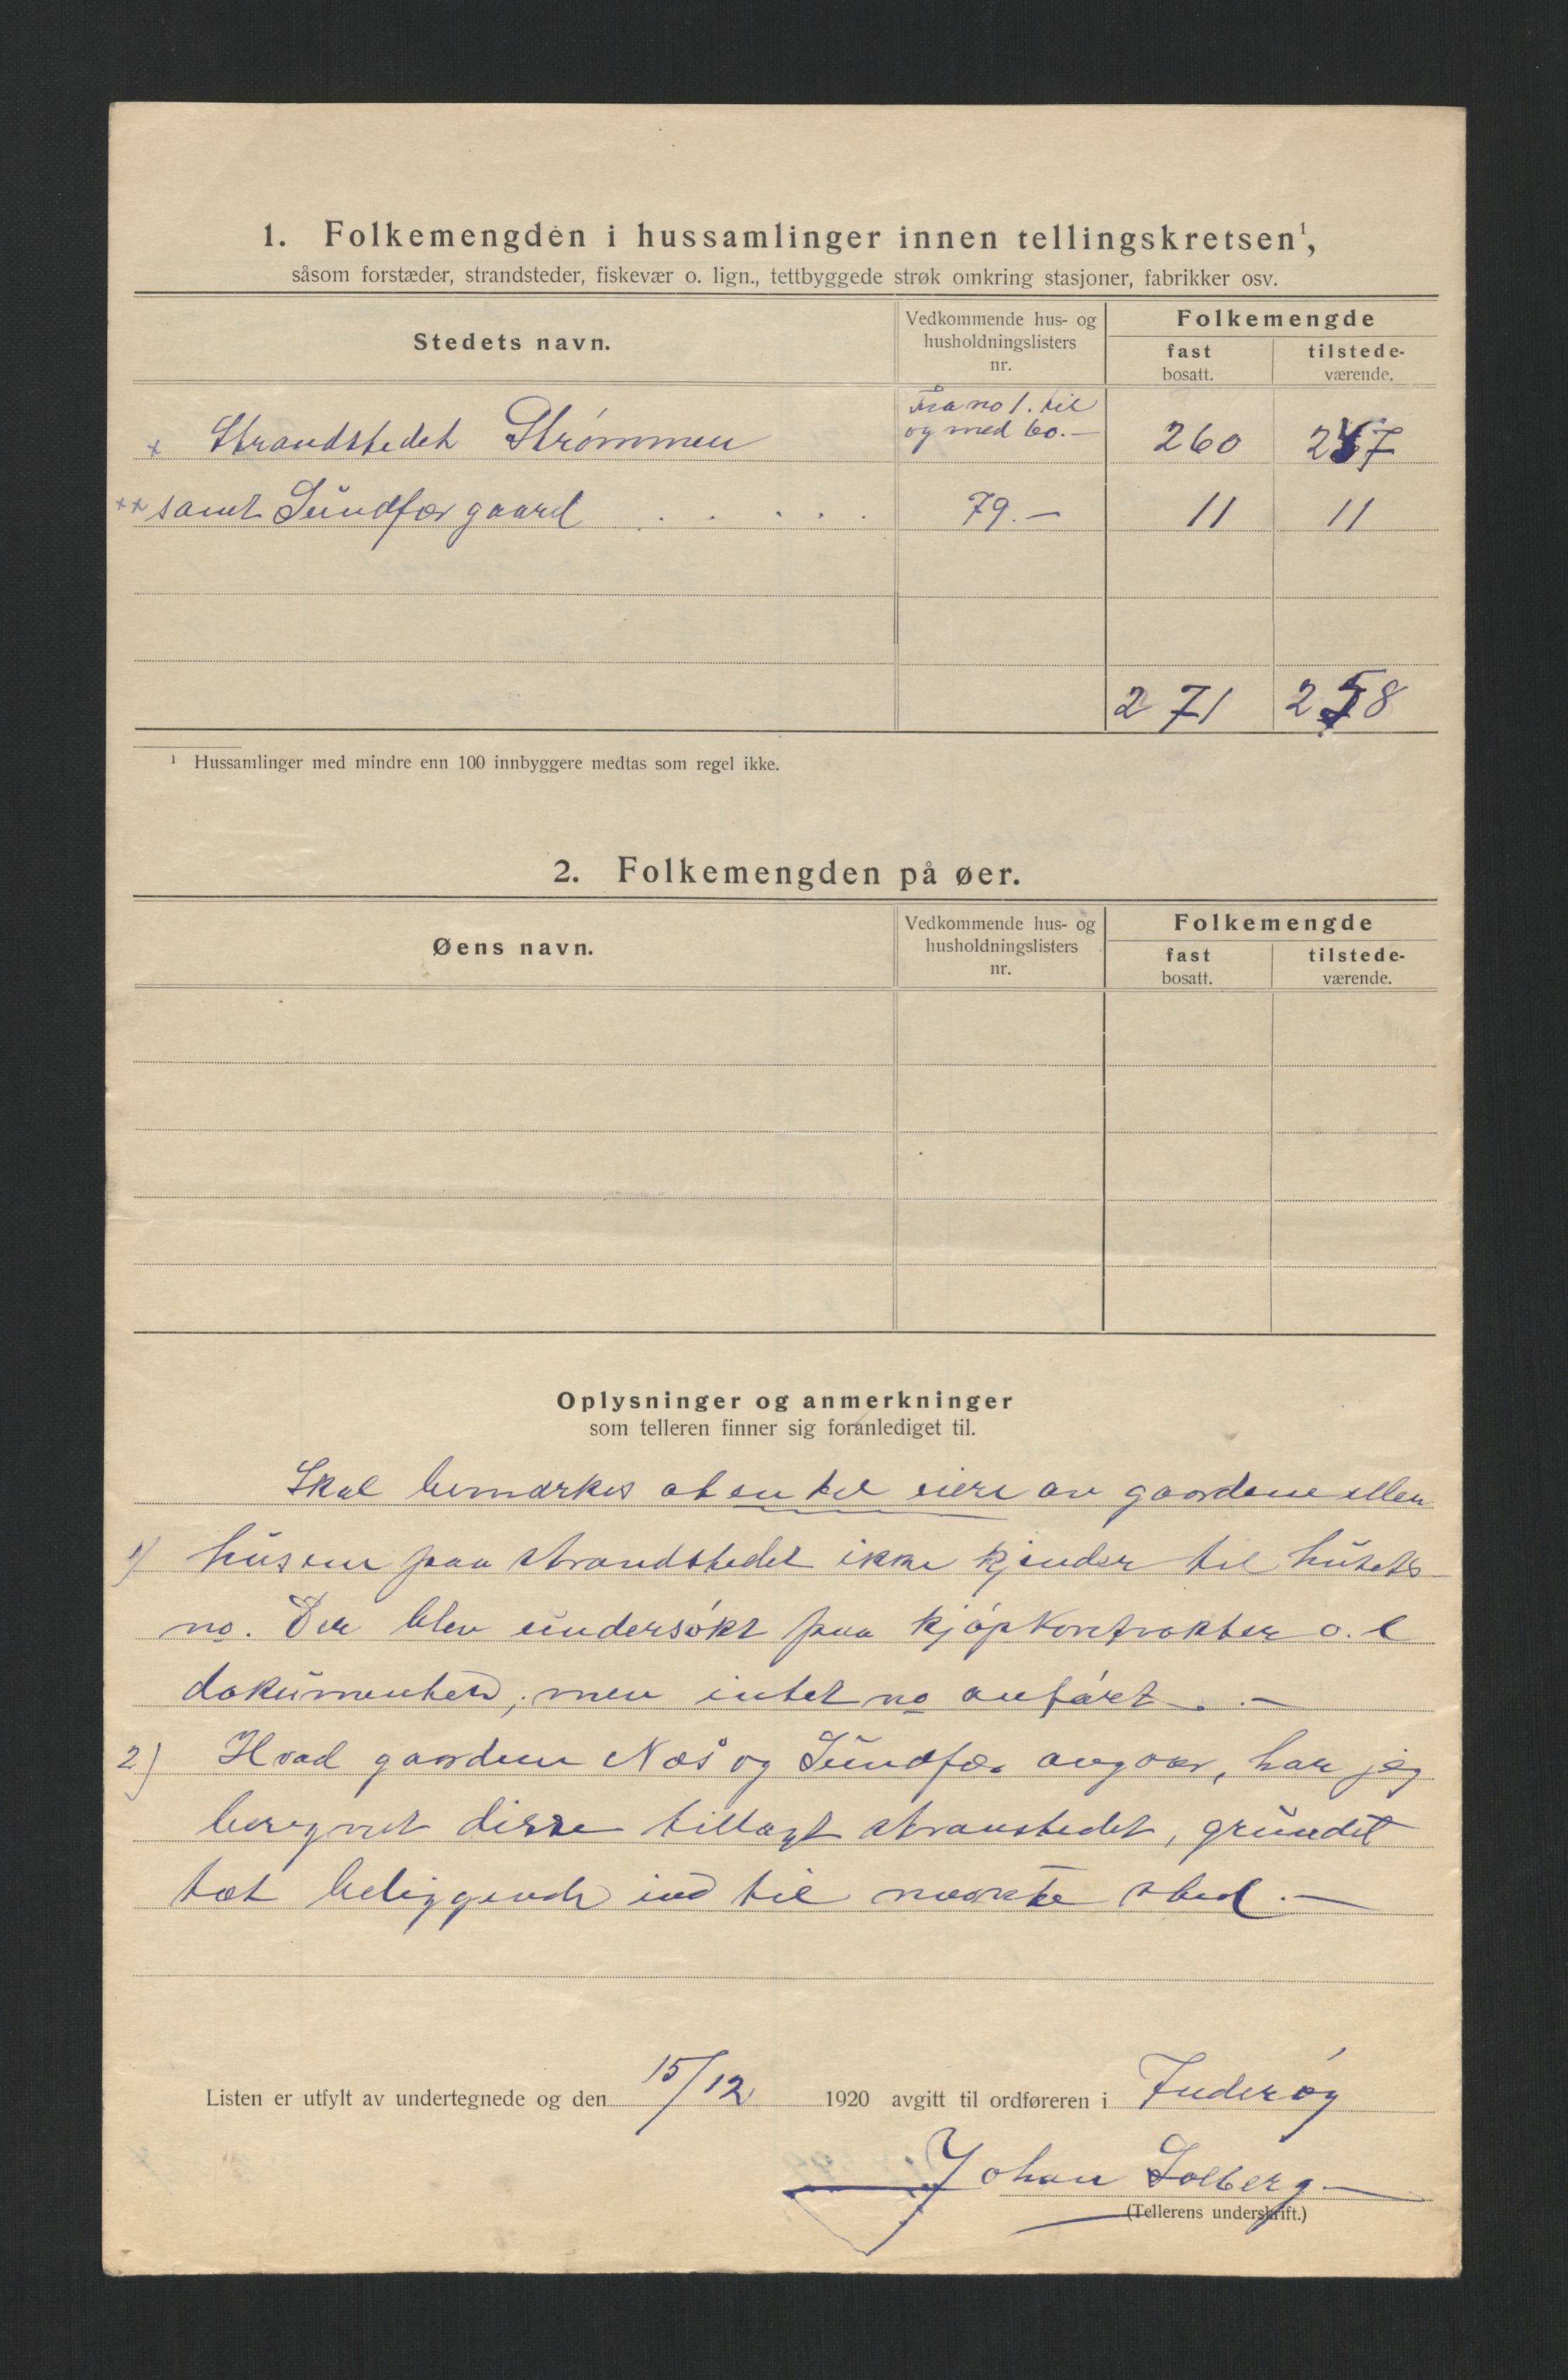 1. Folkemengden i hussamlinger innen tellingskretsen¹,
såsom forstæder, strandsteder, fiskevær o. lign., tettbyggede strøk omkring stasjoner, fabrikker osv.
Stedets navn.
Vedkommende hus- og husholdningslisters nr.
Folkemengde
fast bosatt.
tilstede-værende.
x Strandstedet Strømmen Fra no 1. til og med 60.— 260 247
xx samt Sundfær gaard . . . . . 79.— 11 11
271 258
¹ Hussamlinger med mindre enn 100 innbyggere medtas som regel ikke.
2. Folkemengden på øer.
Øens navn.
Vedkommende hus- og husholdningslisters nr.
Folkemengde
fast bosatt.
tilstede-værende.
Oplysninger og anmerkninger
som telleren finner sig foranlediget til.
Skal bemærkes at en del eiere av gaardene eller
1) husene paa strandstedet ikke kjender til husets
no. Der blev undersøkt paa kjøpkontrakter o. l
dokumenter, men intet no anført. —
2) Hvad gaardene Næs og Sundfær angaar, har jeg
beregnet disse tillagt stranstedet, grundet
tæt beliggende ind til næste sted. —
Listen er utfylt av undertegnede og den 15/12 1920 avgitt til ordføreren i Inderøy
Johan Solberg —
(Tellerens underskrift.)